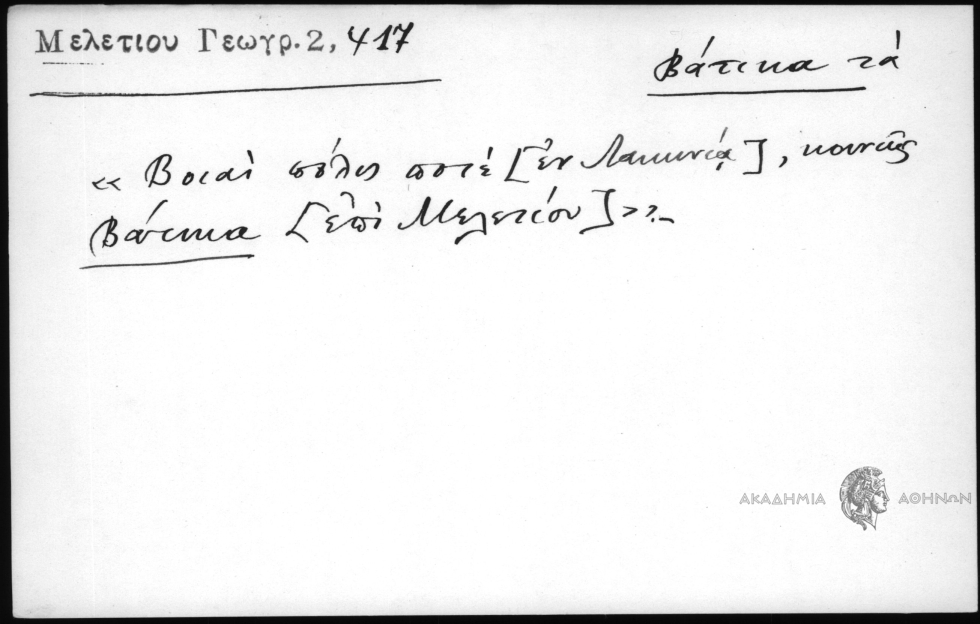 Μελετίου Γεωγρ. 2, 417
Βάτικα τά
«Βοιαὶ πόλις ποτὲ [ἐν Λακωνίᾳ], κοινῶς
Βάτικα [ἐπὶ Μελετίου]».
ΑΚΑΔΗΜΙΑ ΑΘΗΝΩΝ